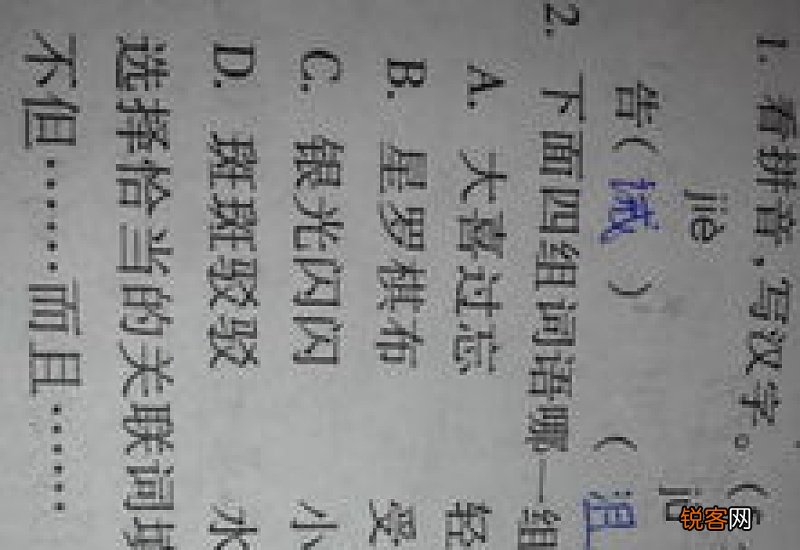 1. 看拼音,写汉字。(
jiè
告( 诫 ) ( 沮
2. 下面四组词语哪一组
A. 大喜过忘 轻
B. 星罗棋布 受
C. 银光闪闪 小
D. 斑斑驳驳 水
选择恰当的关联词填
不但……而且……
锐客网